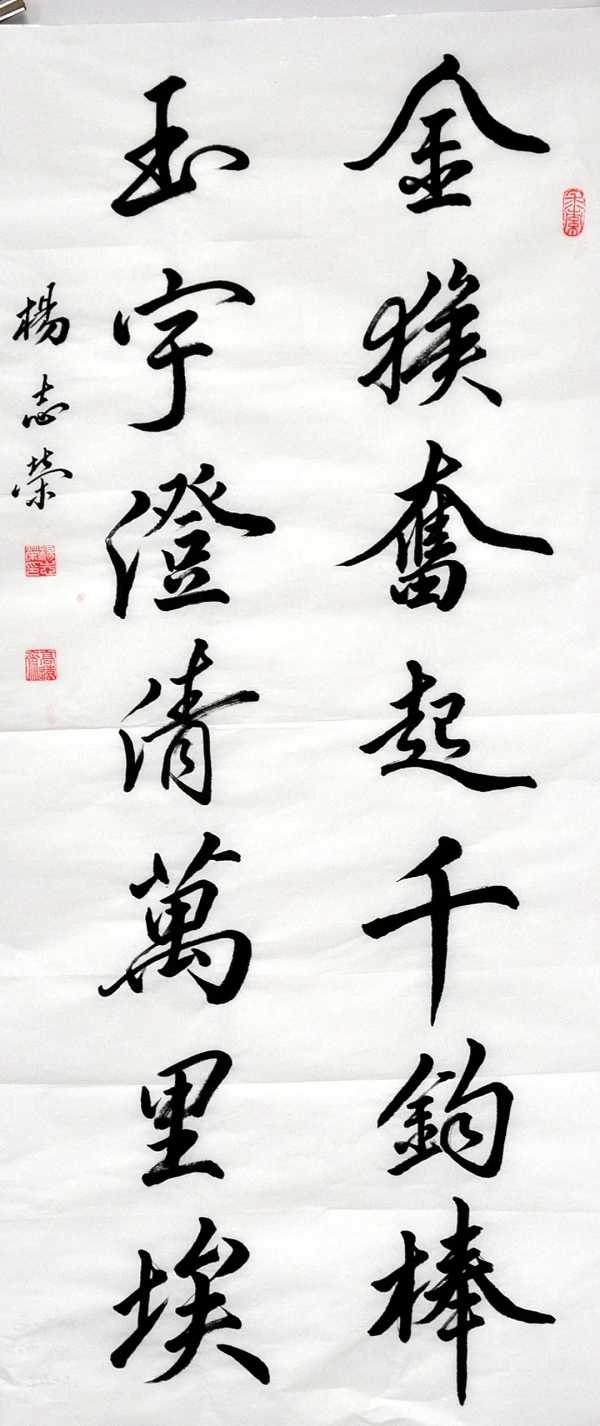 金猴奮起千鈞棒
玉宇澄清萬里埃
楊志榮